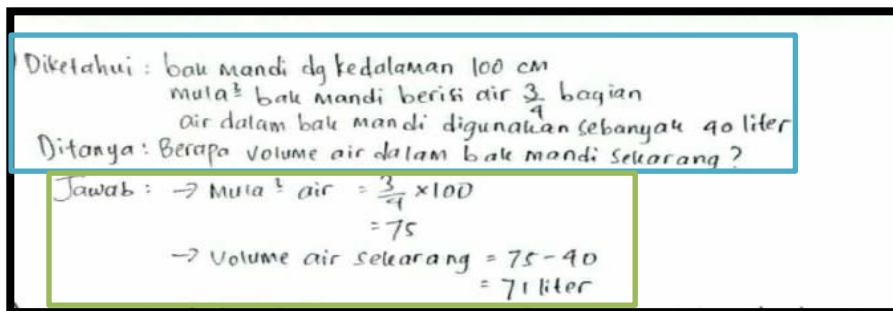 Diketahui : bak mandi dg kedalaman 100 cm
mula² bak mandi berisi air 3/4 bagian
air dalam bak mandi digunakan sebanyak 40 liter
Ditanya : Berapa volume air dalam bak mandi sekarang ?
Jawab : → Mula² air = 3/4 x 100
= 75
→ Volume air sekarang = 75 - 40
= 71 liter